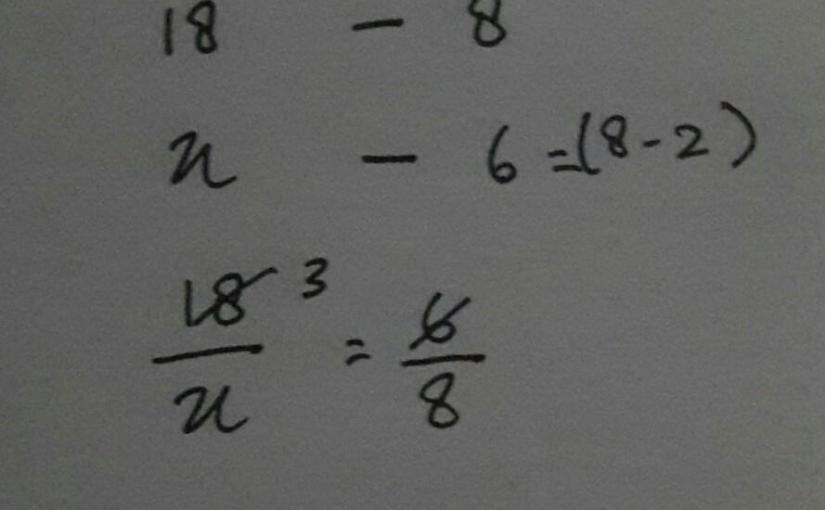 18 - 8
x - 6 = (8 - 2)
18 3 / x = 6 / 8